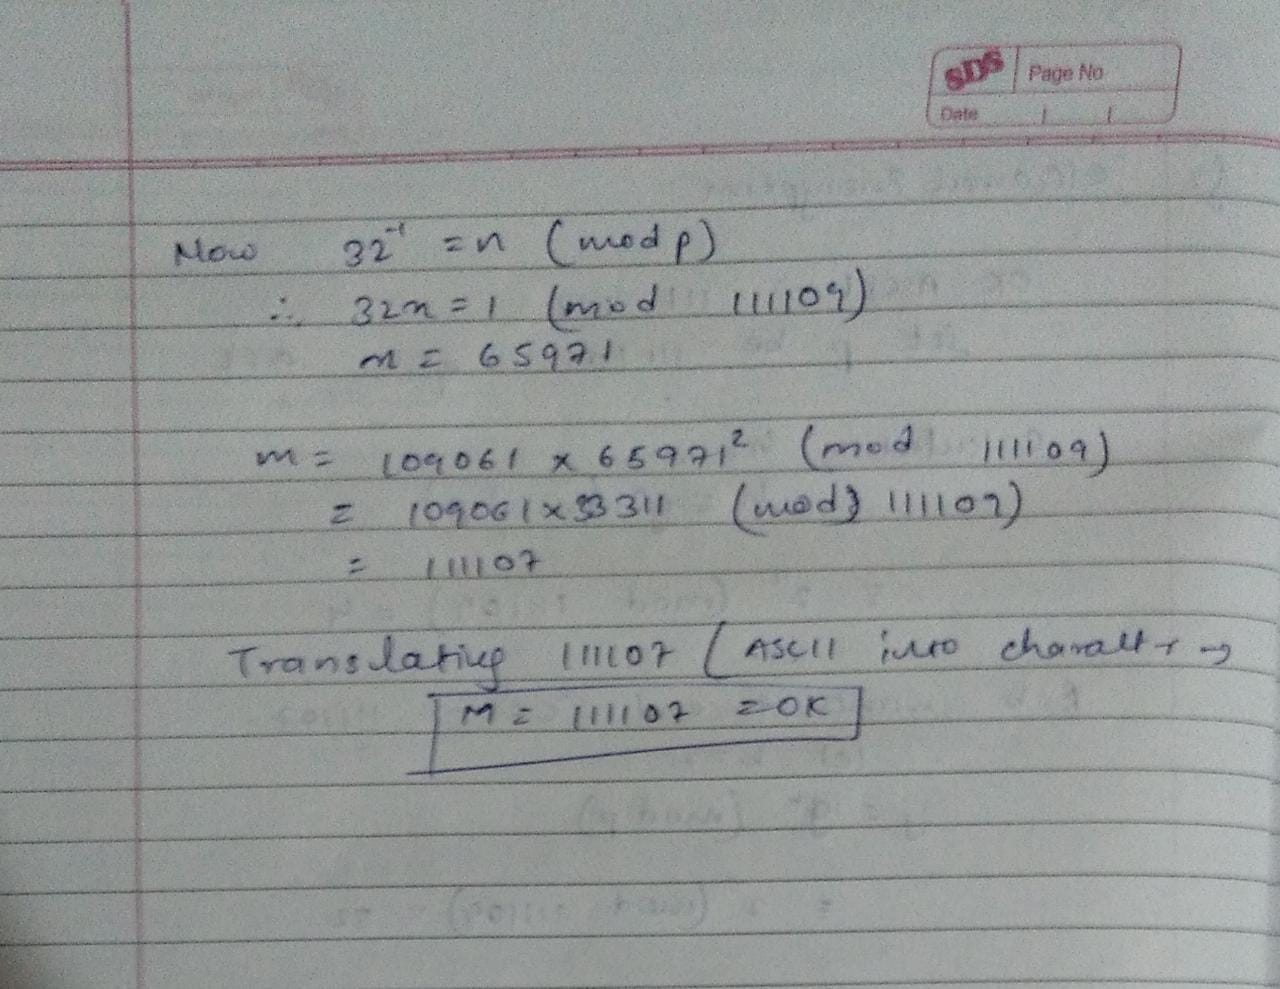 SDS Page No
Date
Now 32⁻¹ = n (mod p)
∴ 32n = 1 (mod 111109)
n = 65971
m = 109061 x 65971² (mod 111109)
= 109061 x 33311 (mod 111109)
= 111107
Translating 111107 ( ASCII into
M = 111107 = OK